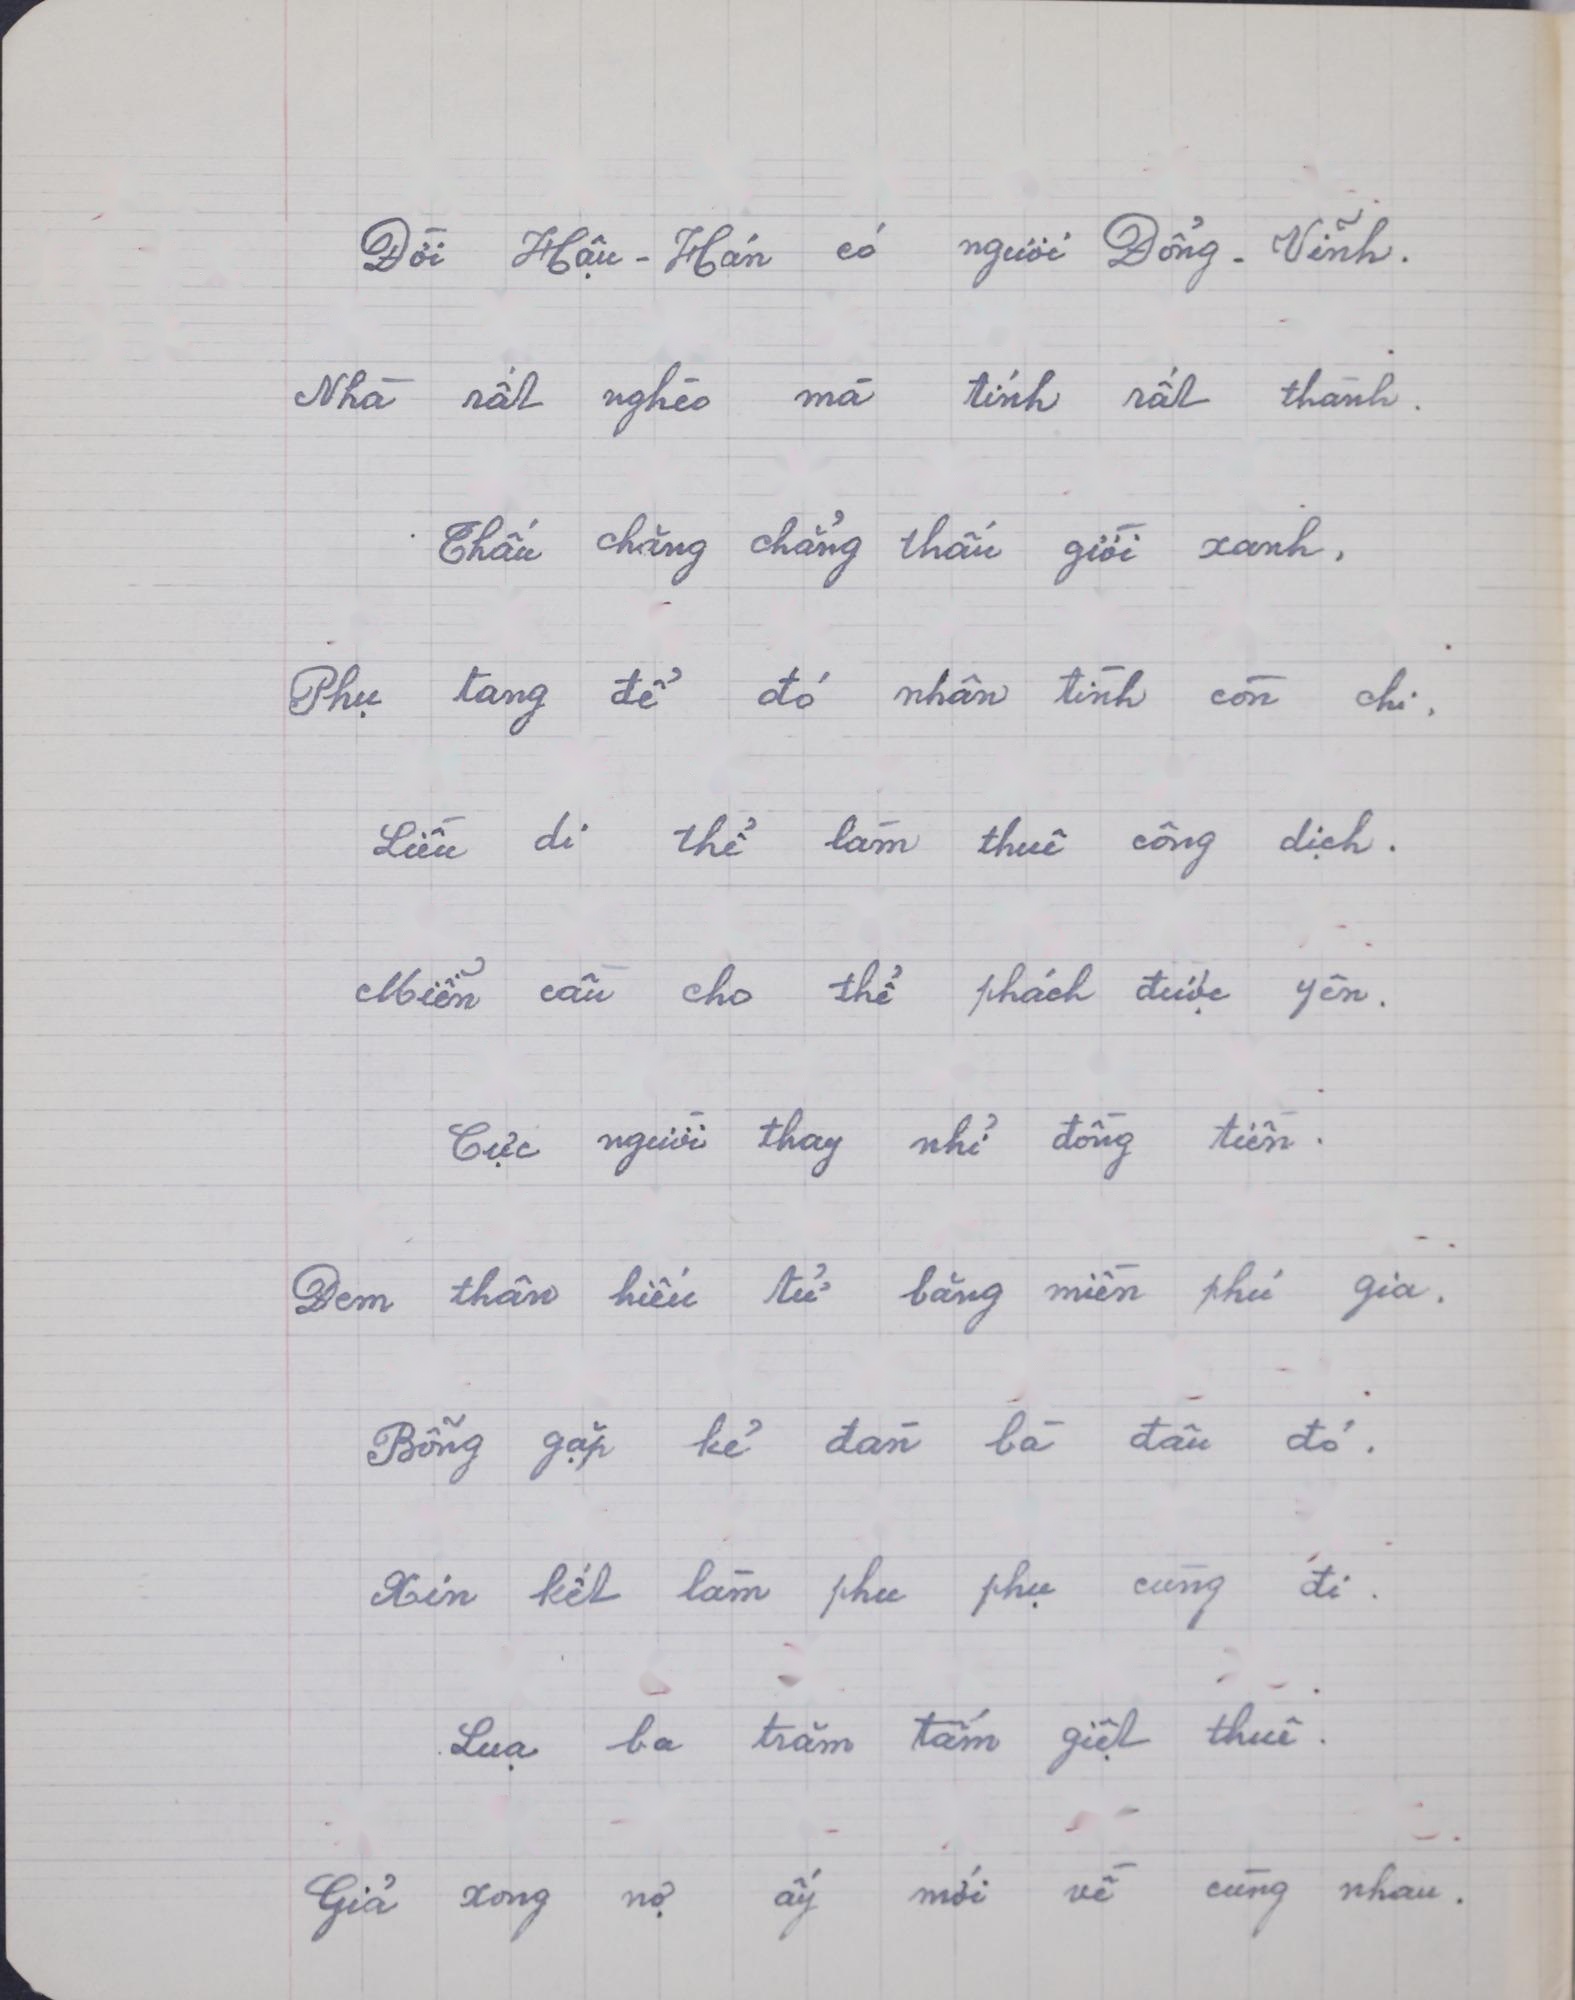 Đời Hậu-Hán có người Đổng-Vĩnh.
Nhà rất nghèo mà tính rất thành.
Thấu chăng chẳng thấu giời xanh,
Phụ tang để đó nhân tình còn chi,
Liều di thể làm thuê công dịch.
Miễn cầu cho thể phách được yên.
Cực người thay nhỉ đồng tiền.
Đem thân hiếu tử băng miền phú gia.
Bỗng gặp kẻ đàn bà đâu đó.
Xin kết làm phu phụ cùng đi.
Lụa ba trăm tấm giệt thuê.
Giả xong nợ ấy mới về cùng nhau.